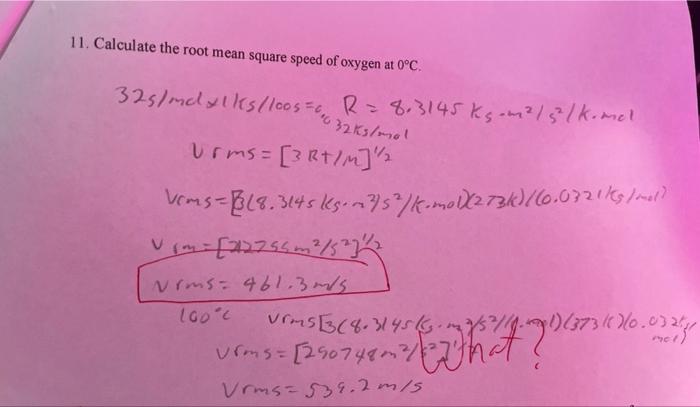 11. Calculate the root mean square speed of oxygen at 0°C.
32g/mol x 1kg/1000g = R = 8.3145 kg·m²/s²/K·mol
.032kg/mol
Vrms = [3Rt/M]^1/2
Vrms = [3(8.3145 kg·m²/s²/K·mol)(273K)/(0.032 kg/mol)
Vrm = [212799m²/s²]^1/2
Vrms = 461.3 m/s
100°C Vrms[3(8.3145 kg·m²/s²/K·mol)(373K)(0.032kg/mol)
Vrms = [290748m²/s²]
What?
Vrms = 539.2 m/s